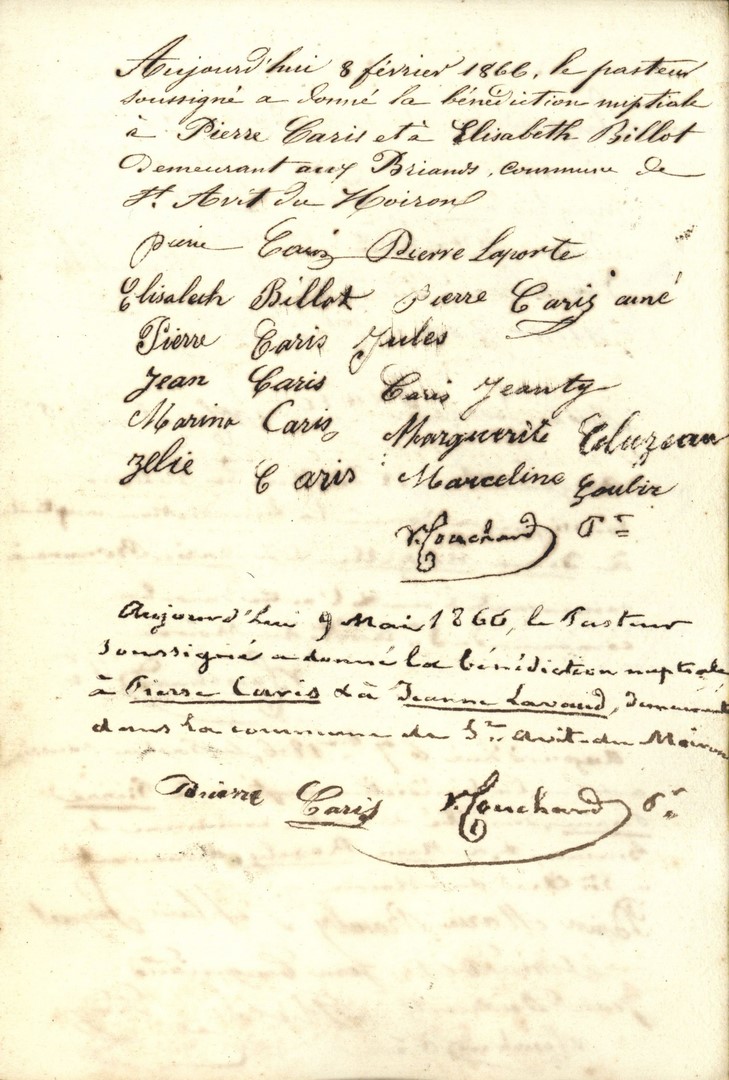 Aujourd'hui 8 février 1866, le pasteur
soussigné a donné la bénédiction nuptiale
à Pierre Caris et à Elisabeth Billot
Demeurant aux Briands, commune de
St. Avit du Moiron
pierre Caris Pierre Laporte
Elisabeth Billot Pierre Caris ainé
Pierre Caris Jules
Jean Caris Caris Jeanty
Marino Caris Marguerite Eluzeau
Zélie Caris Marceline Goulir
V. Couchard Pr
Aujourd'hui 9 Mai 1866, le Pasteur
soussigné a donné la bénédiction nuptiale
à Pierre Caris & à Jeanne Lavaud, demeurant
dans la commune de St. Avit-du Moiron
Pierre Caris V. Couchard Pr